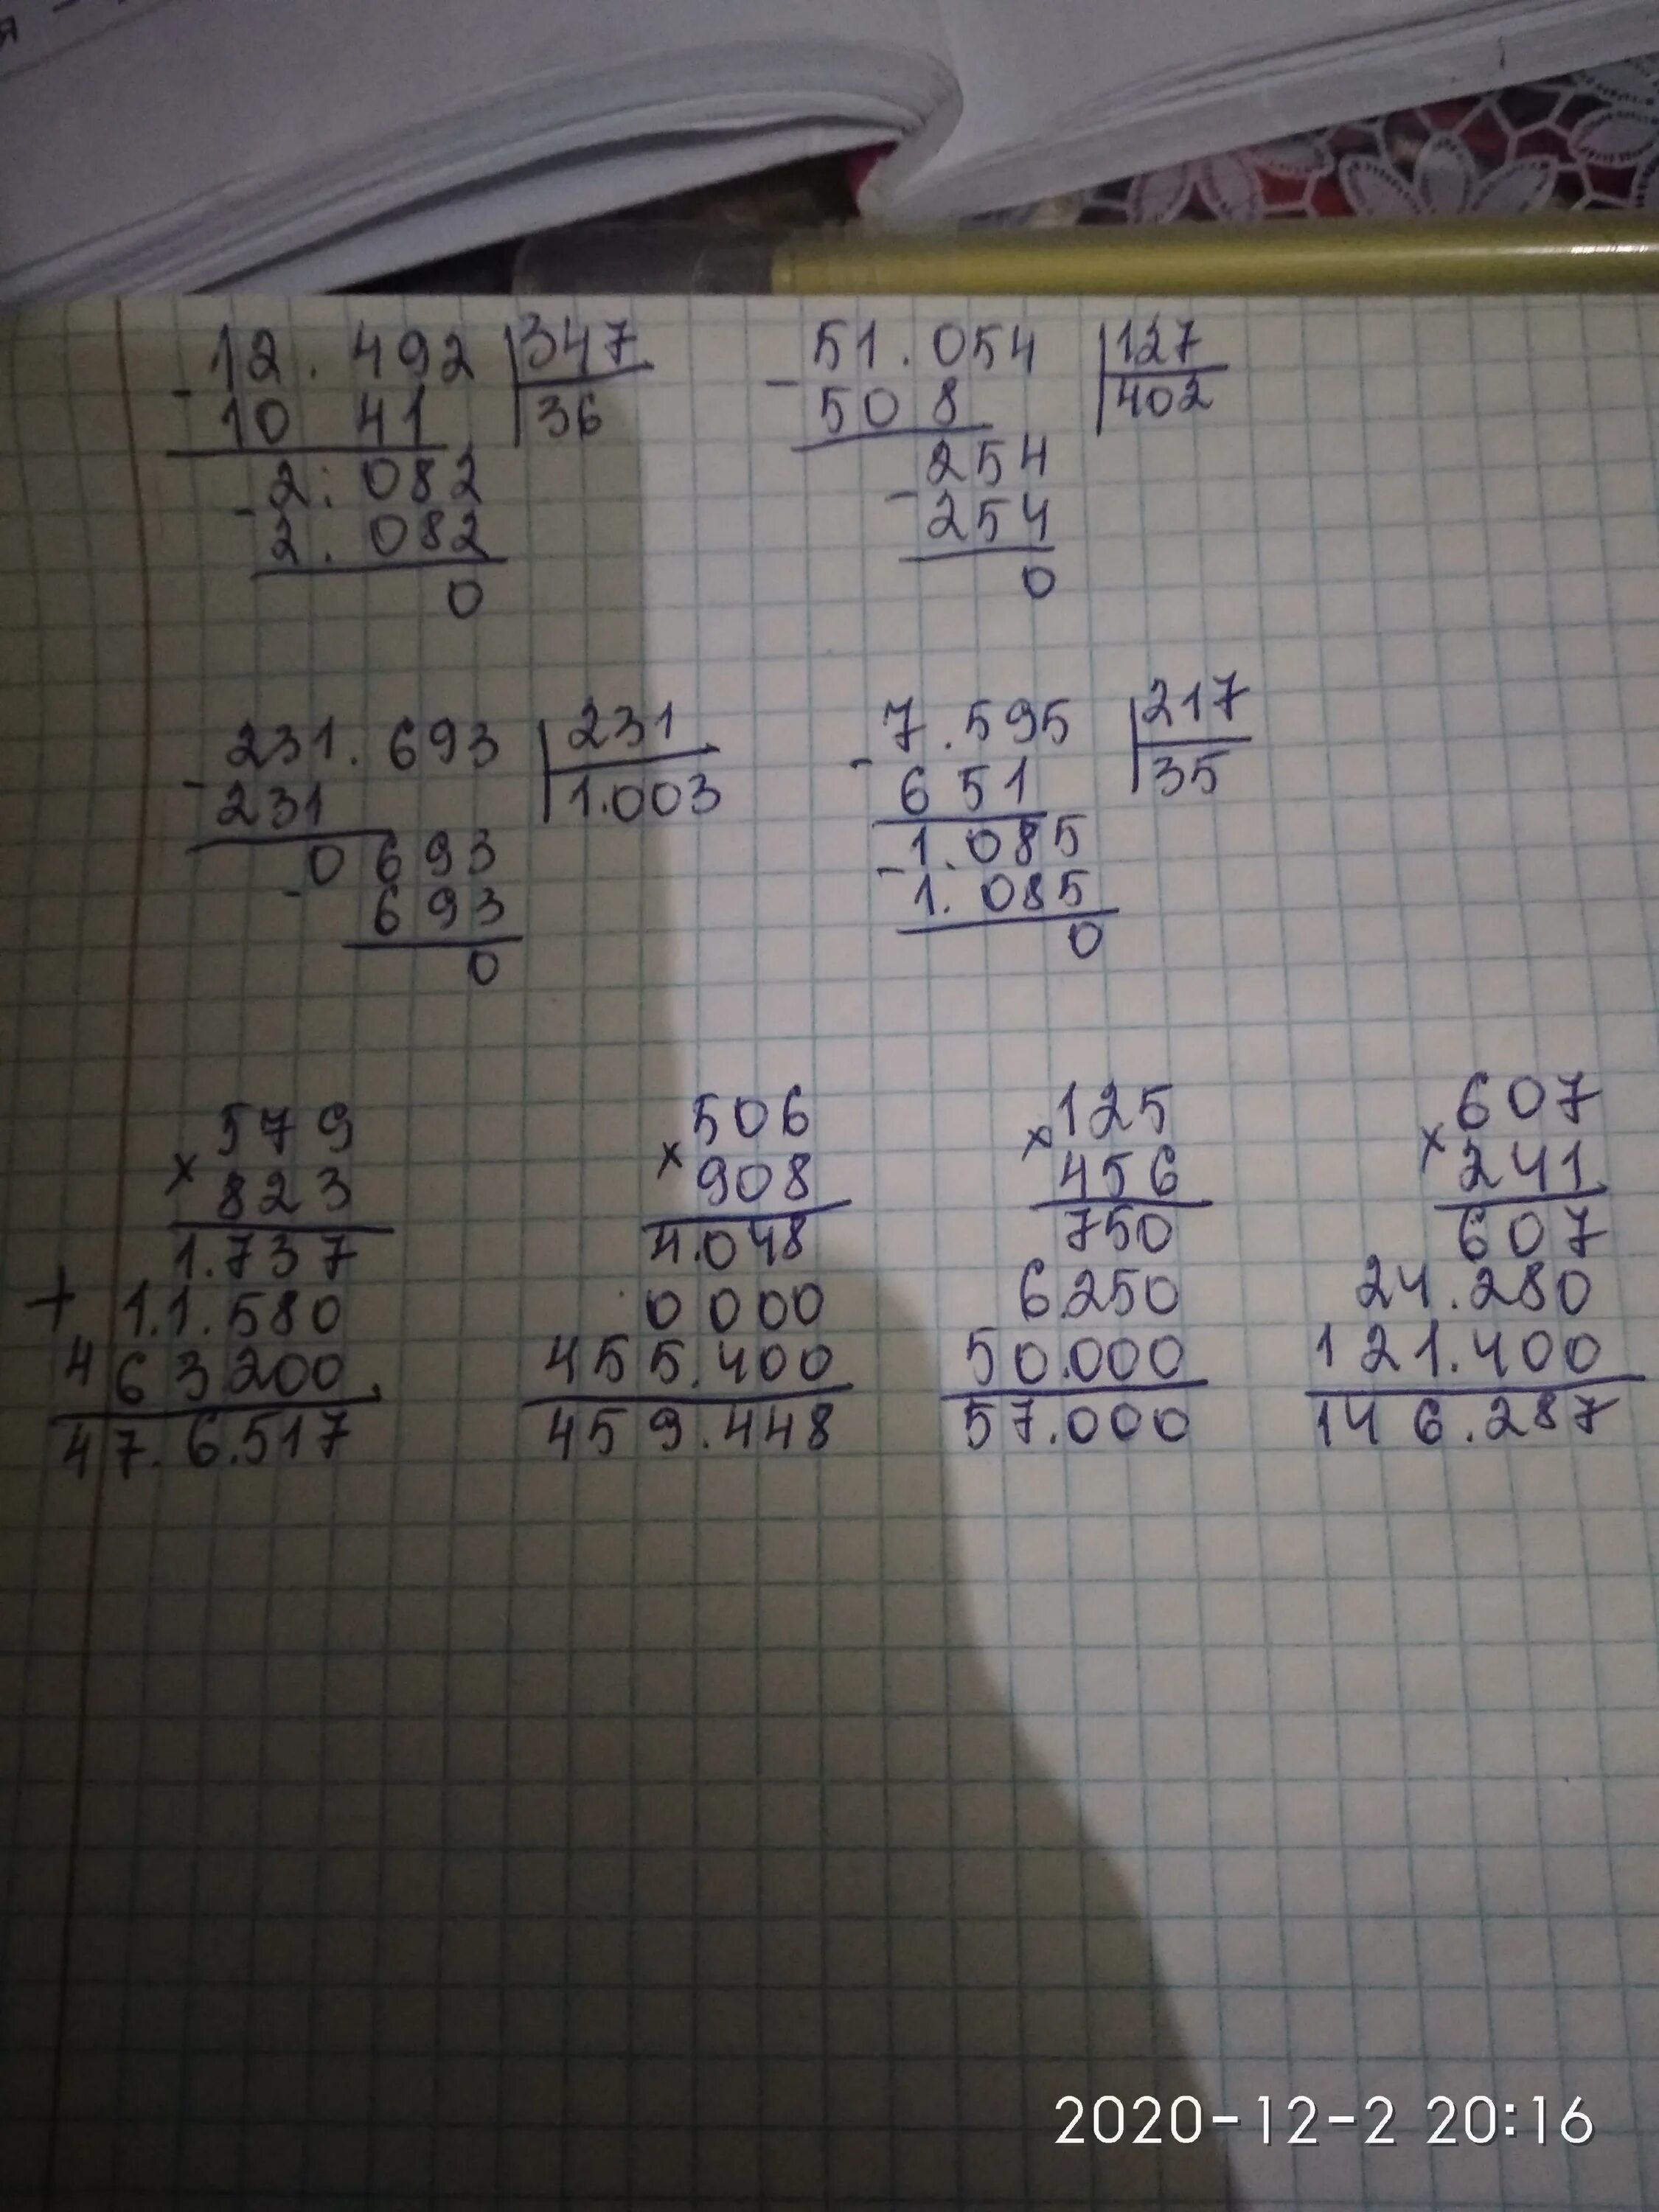 12.492 |347
- 10 41 |36
- 2.082
2.082
0
51.054 |127
- 508 |402
- 254
254
0
231.693 |231
- 231 |1.003
0693
- 693
0
7.595 |217
- 651 |35
- 1.085
1.085
0
579
× 823
1.737
+ 1.1.580
463200
47.6.517
506
× 908
4.048
0000
455.400
459.448
125
× 456
750
6.250
50.000
57.000
607
× 241
607
24.280
121.400
146.287
2020-12-2 20:16